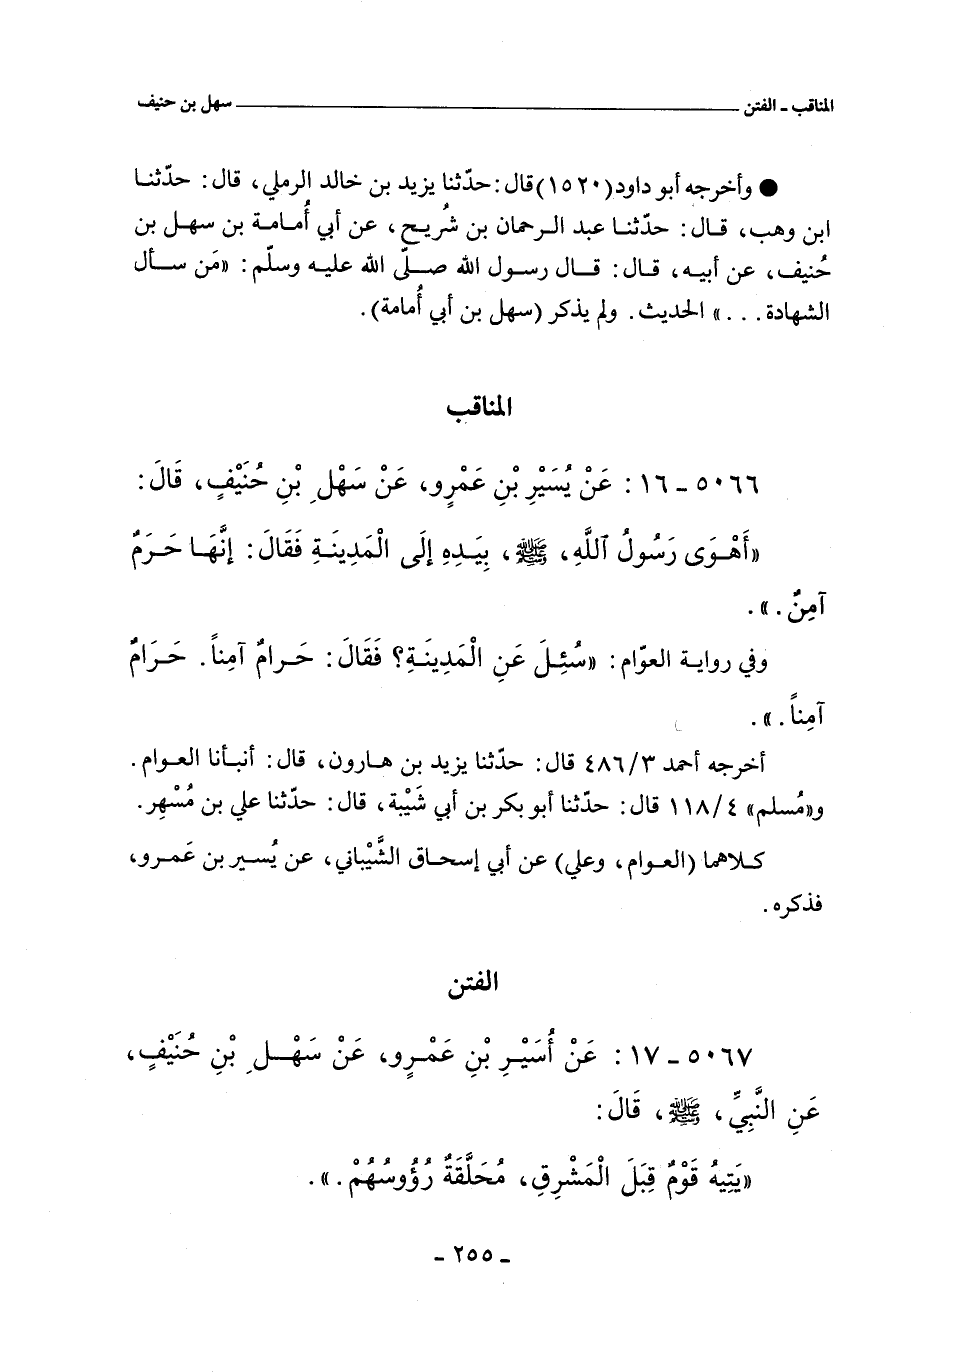 المناقب ـ الفتن ــــــــــــــــــــ سهل بن حنيف
● وأخرجه أبو داود(١٥٢٠)قال: حدّثنا يزيد بن خالد الرملي، قال: حدّثنا
ابن وهب، قال: حدّثنا عبد الرحمان بن شُريح، عن أبي أمامة بن سهل بن
حُنيف، عن أبيه، قال: قال رسول الله صلّى الله عليه وسلّم: «مَن سأل
الشهادة...» الحديث. ولم يذكر (سهل بن أبي أُمامة).
المناقب
٥٠٦٦ ـ ١٦: عَنْ يُسَيْرِ بْنِ عَمْرٍو، عَنْ سَهْلِ بْنِ حُنَيْفٍ، قَالَ:
«أَهْوَى رَسُولُ ٱللَّهِ، ﷺ، بِيَدِهِ إِلَى الْمَدِينَةِ فَقَالَ: إِنَّهَا حَرَمٌ
آمِنٌ.».
وفي رواية العوّام: «سُئِلَ عَنِ الْمَدِينَةِ؟ فَقَالَ: حَرامٌ آمِناً. حَرَامٌ
آمِناً.».
أخرجه أحمد ٤٨٦/٣ قال: حدّثنا يزيد بن هارون، قال: أنبأنا العوام.
و«مُسلم» ١١٨/٤ قال: حدّثنا أبو بكر بن أبي شَيْبة، قال: حدّثنا علي بن مُسْهِر.
كلاهما (العوام، وعلي) عن أبي إسحاق الشَّيْباني، عن يُسير بن عَمرو،
فذكره.
الفتن
٥٠٦٧ ـ ١٧: عَنْ أُسَيْرِ بْنِ عَمْرٍو، عَنْ سَهْلِ بْنِ حُنَيْفٍ،
عَنِ النَّبِيِّ، ﷺ، قَالَ:
«يَتِيهُ قَوْمٌ قِبَلَ الْمَشْرِقِ، مُحَلَّقَةٌ رُؤُوسُهُمْ.».
ـ ٢٥٥ ـ